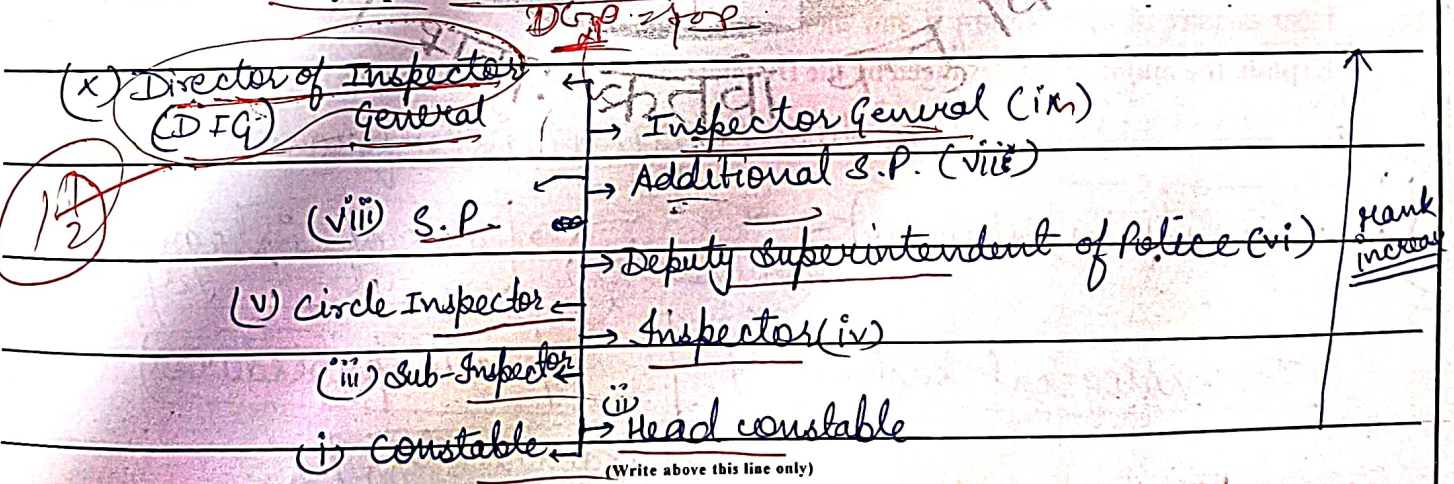 DGP
(x) Director of Inspector
(DIG) General
Inspector General (ix)
Additional S.P. (viii)
1 1/2
(viii) S.P.
Deputy Superintendent of Police (vi)
rank
increas
(v) Circle Inspector
Inspector (iv)
(iii) Sub-Inspector
(ii)
Head constable
(i) Constable
(Write above this line only)